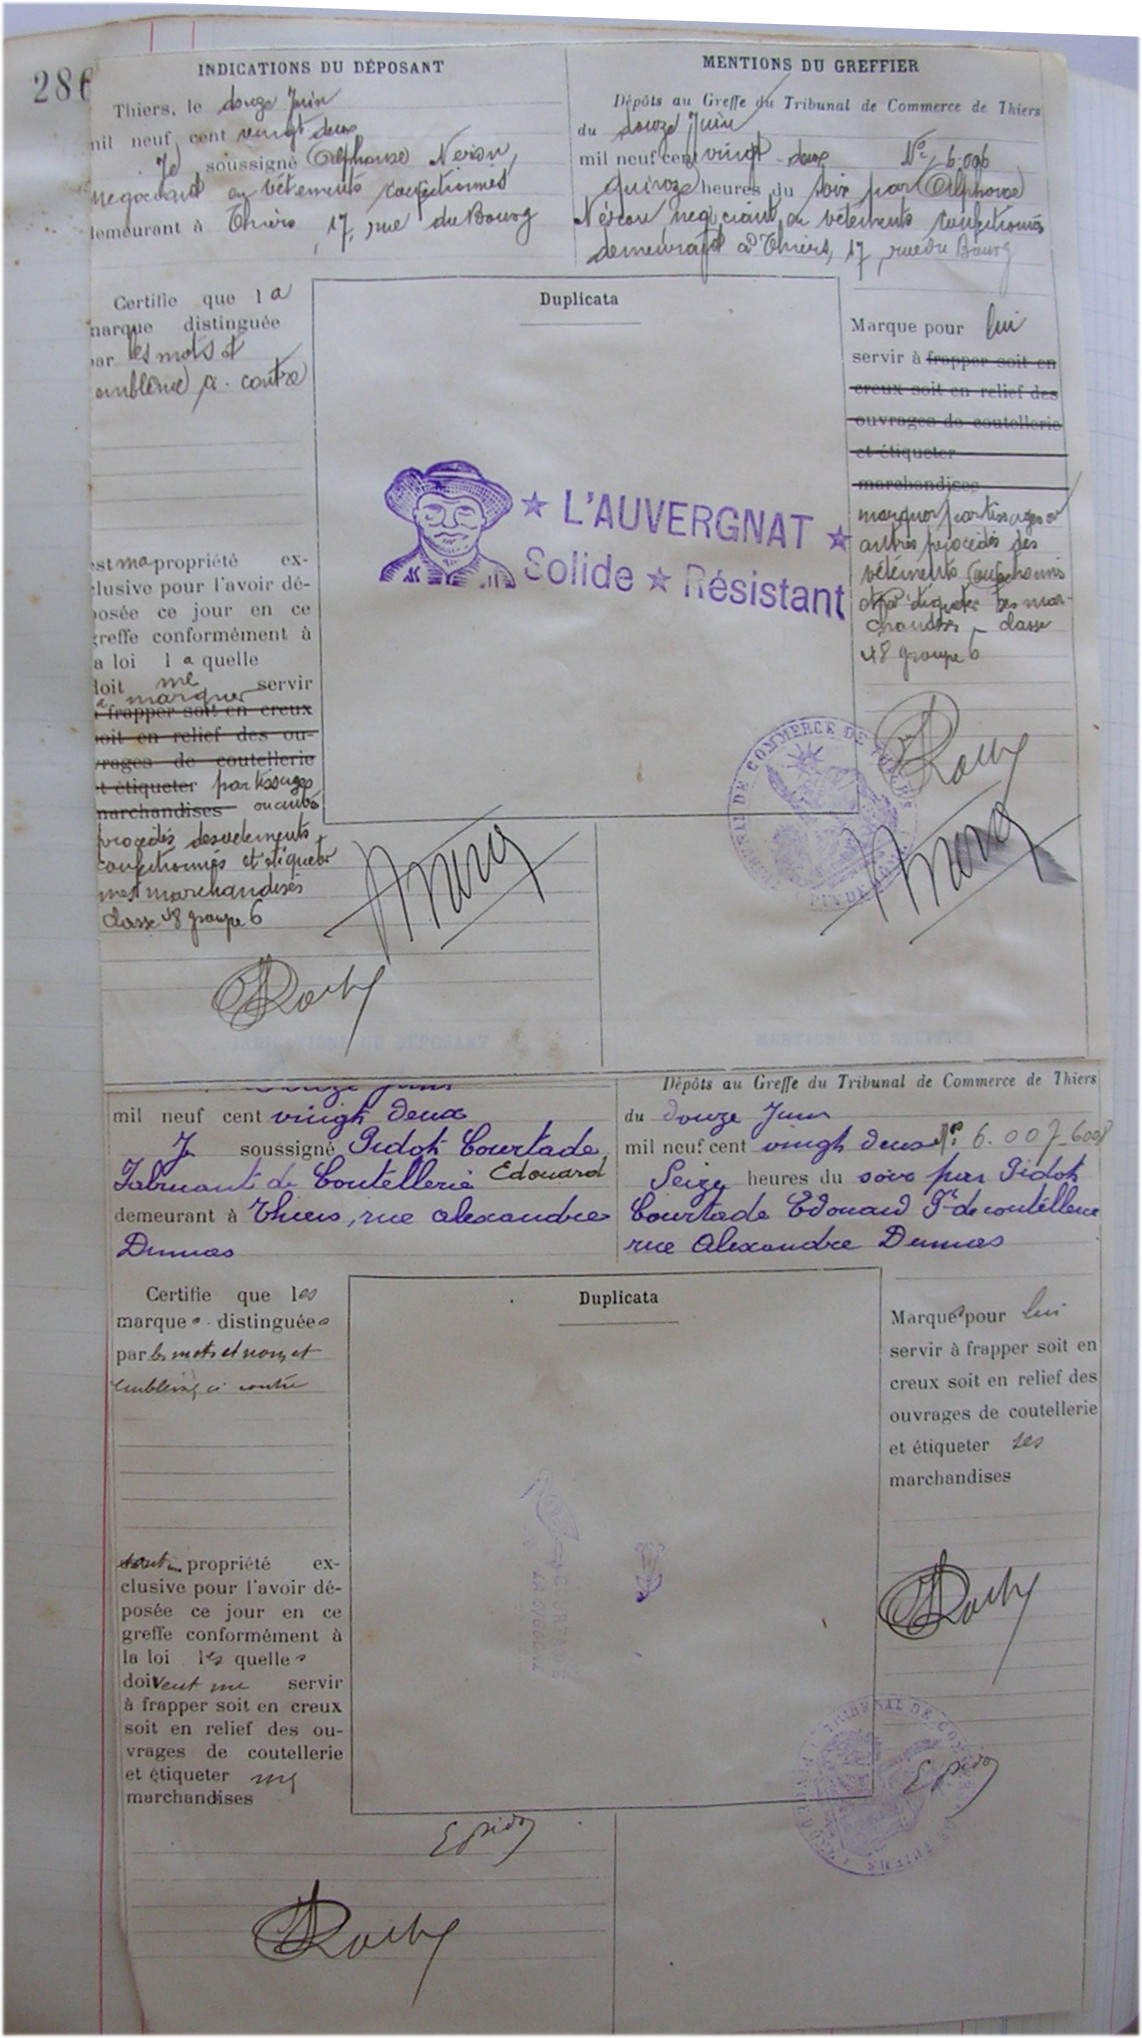 286
INDICATIONS DU DÉPOSANT
Thiers, le douze Juin
mil neuf cent vingt deux
Je soussigné Alphonse Néron,
négociant en vêtements confectionnés
demeurant à Thiers, 17, rue du Bourg
Certifie que la
marque distinguée
par les mots et
emblème ci-contre
est ma propriété ex-
clusive pour l'avoir dé-
posée ce jour en ce
greffe conformément à
la loi laquelle
doit me servir
à marquer
à frapper soit en creux
soit en relief des ou-
vrages de coutellerie
et étiqueter par tissages
marchandises ou autres
procédés des vêtements
confectionnés et étiqueter
mes marchandises
classe 48 groupe 6
Roche
MENTIONS DU GREFFIER
Dépôts au Greffe du Tribunal de Commerce de Thiers
du douze Juin
mil neuf cent vingt-deux No 6.006
quinze heures du soir par Alphonse
Néron négociant en vêtements confectionnés
demeurant à Thiers, 17, rue du Bourg
Duplicata
★ L'AUVERGNAT ★
Solide ★ Résistant
Marque pour lui
servir à frapper soit en
creux soit en relief des
ouvrages de coutellerie
et étiqueter
marchandises
marquer par tissages ou
autres procédés des
vêtements confectionnés
et étiqueter ses mar-
chandises classe
48 groupe 6
Roche
douze Juin
mil neuf cent vingt deux
Je soussigné Pidot Courtade
Edouard
Fabricant de Coutellerie
demeurant à Thiers, rue Alexandre
Dumas
Certifie que les
marques distinguées
par les mots et noms et
emblèmes ci contre
sont propriété ex-
clusive pour l'avoir dé-
posée ce jour en ce
greffe conformément à
la loi lesquelles
doivent me servir
à frapper soit en creux
soit en relief des ou-
vrages de coutellerie
et étiqueter mes
marchandises
E Pidot
Roche
Dépôts au Greffe du Tribunal de Commerce de Thiers
du douze Juin
mil neuf cent vingt deux No 6.007-6008
Seize heures du soir par Pidot
Courtade Edouard Ft de coutellerie
rue Alexandre Dumas
Duplicata
Marques pour lui
servir à frapper soit en
creux soit en relief des
ouvrages de coutellerie
et étiqueter ses
marchandises
Roche
E Pidot